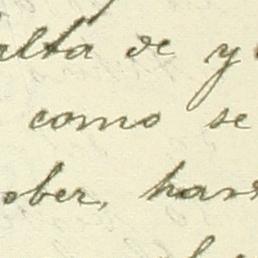 alta de y
como se
ober, han